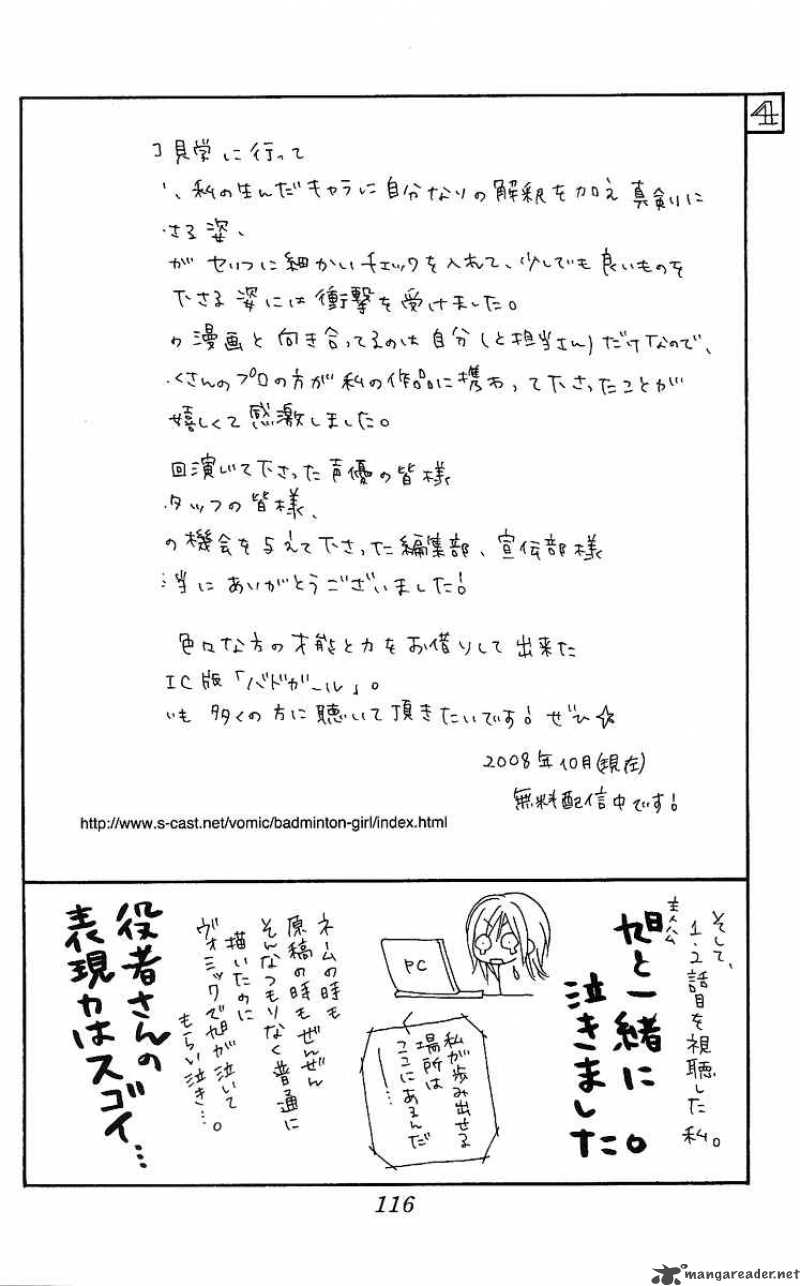 4
見学に行って
、私の生んだキャラに自分なりの解釈を加え真剣に
さる姿、
がセリフに細かいチェックを入れて、少しでも良いものを
下さる姿には衝撃を受けました。
の漫画と向き合ってるのは自分(と担当さん)だけなので、
くさんのプロの方が私の作品に携わって下さったことが
嬉しくて感激しました。
回演じて下さった声優の皆様
タッフの皆様、
の機会を与えて下さった編集部、宣伝部様
当にありがとうございました!
色々な方の才能と力をお借りして出来た
IC版「バドガール」。
も多くの方に聴いて頂きたいです!ぜひ☆
2008年10月(現在)
無料配信中です!
http://www.s-cast.net/vomic/badminton-girl/index.html
そして、
1・2話目を視聴した私。
主人公
旭と一緒に
泣きました。
PC
私が歩み出せる
場所は
ここにあるんだ
ー…
ネームの時も
原稿の時もぜんぜん
そんなつもりなく普通に
描いたのに
ヴォミックで旭が泣いて
もらい泣き…。
役者さんの
表現力はスゴイ…
116
mangareader.net